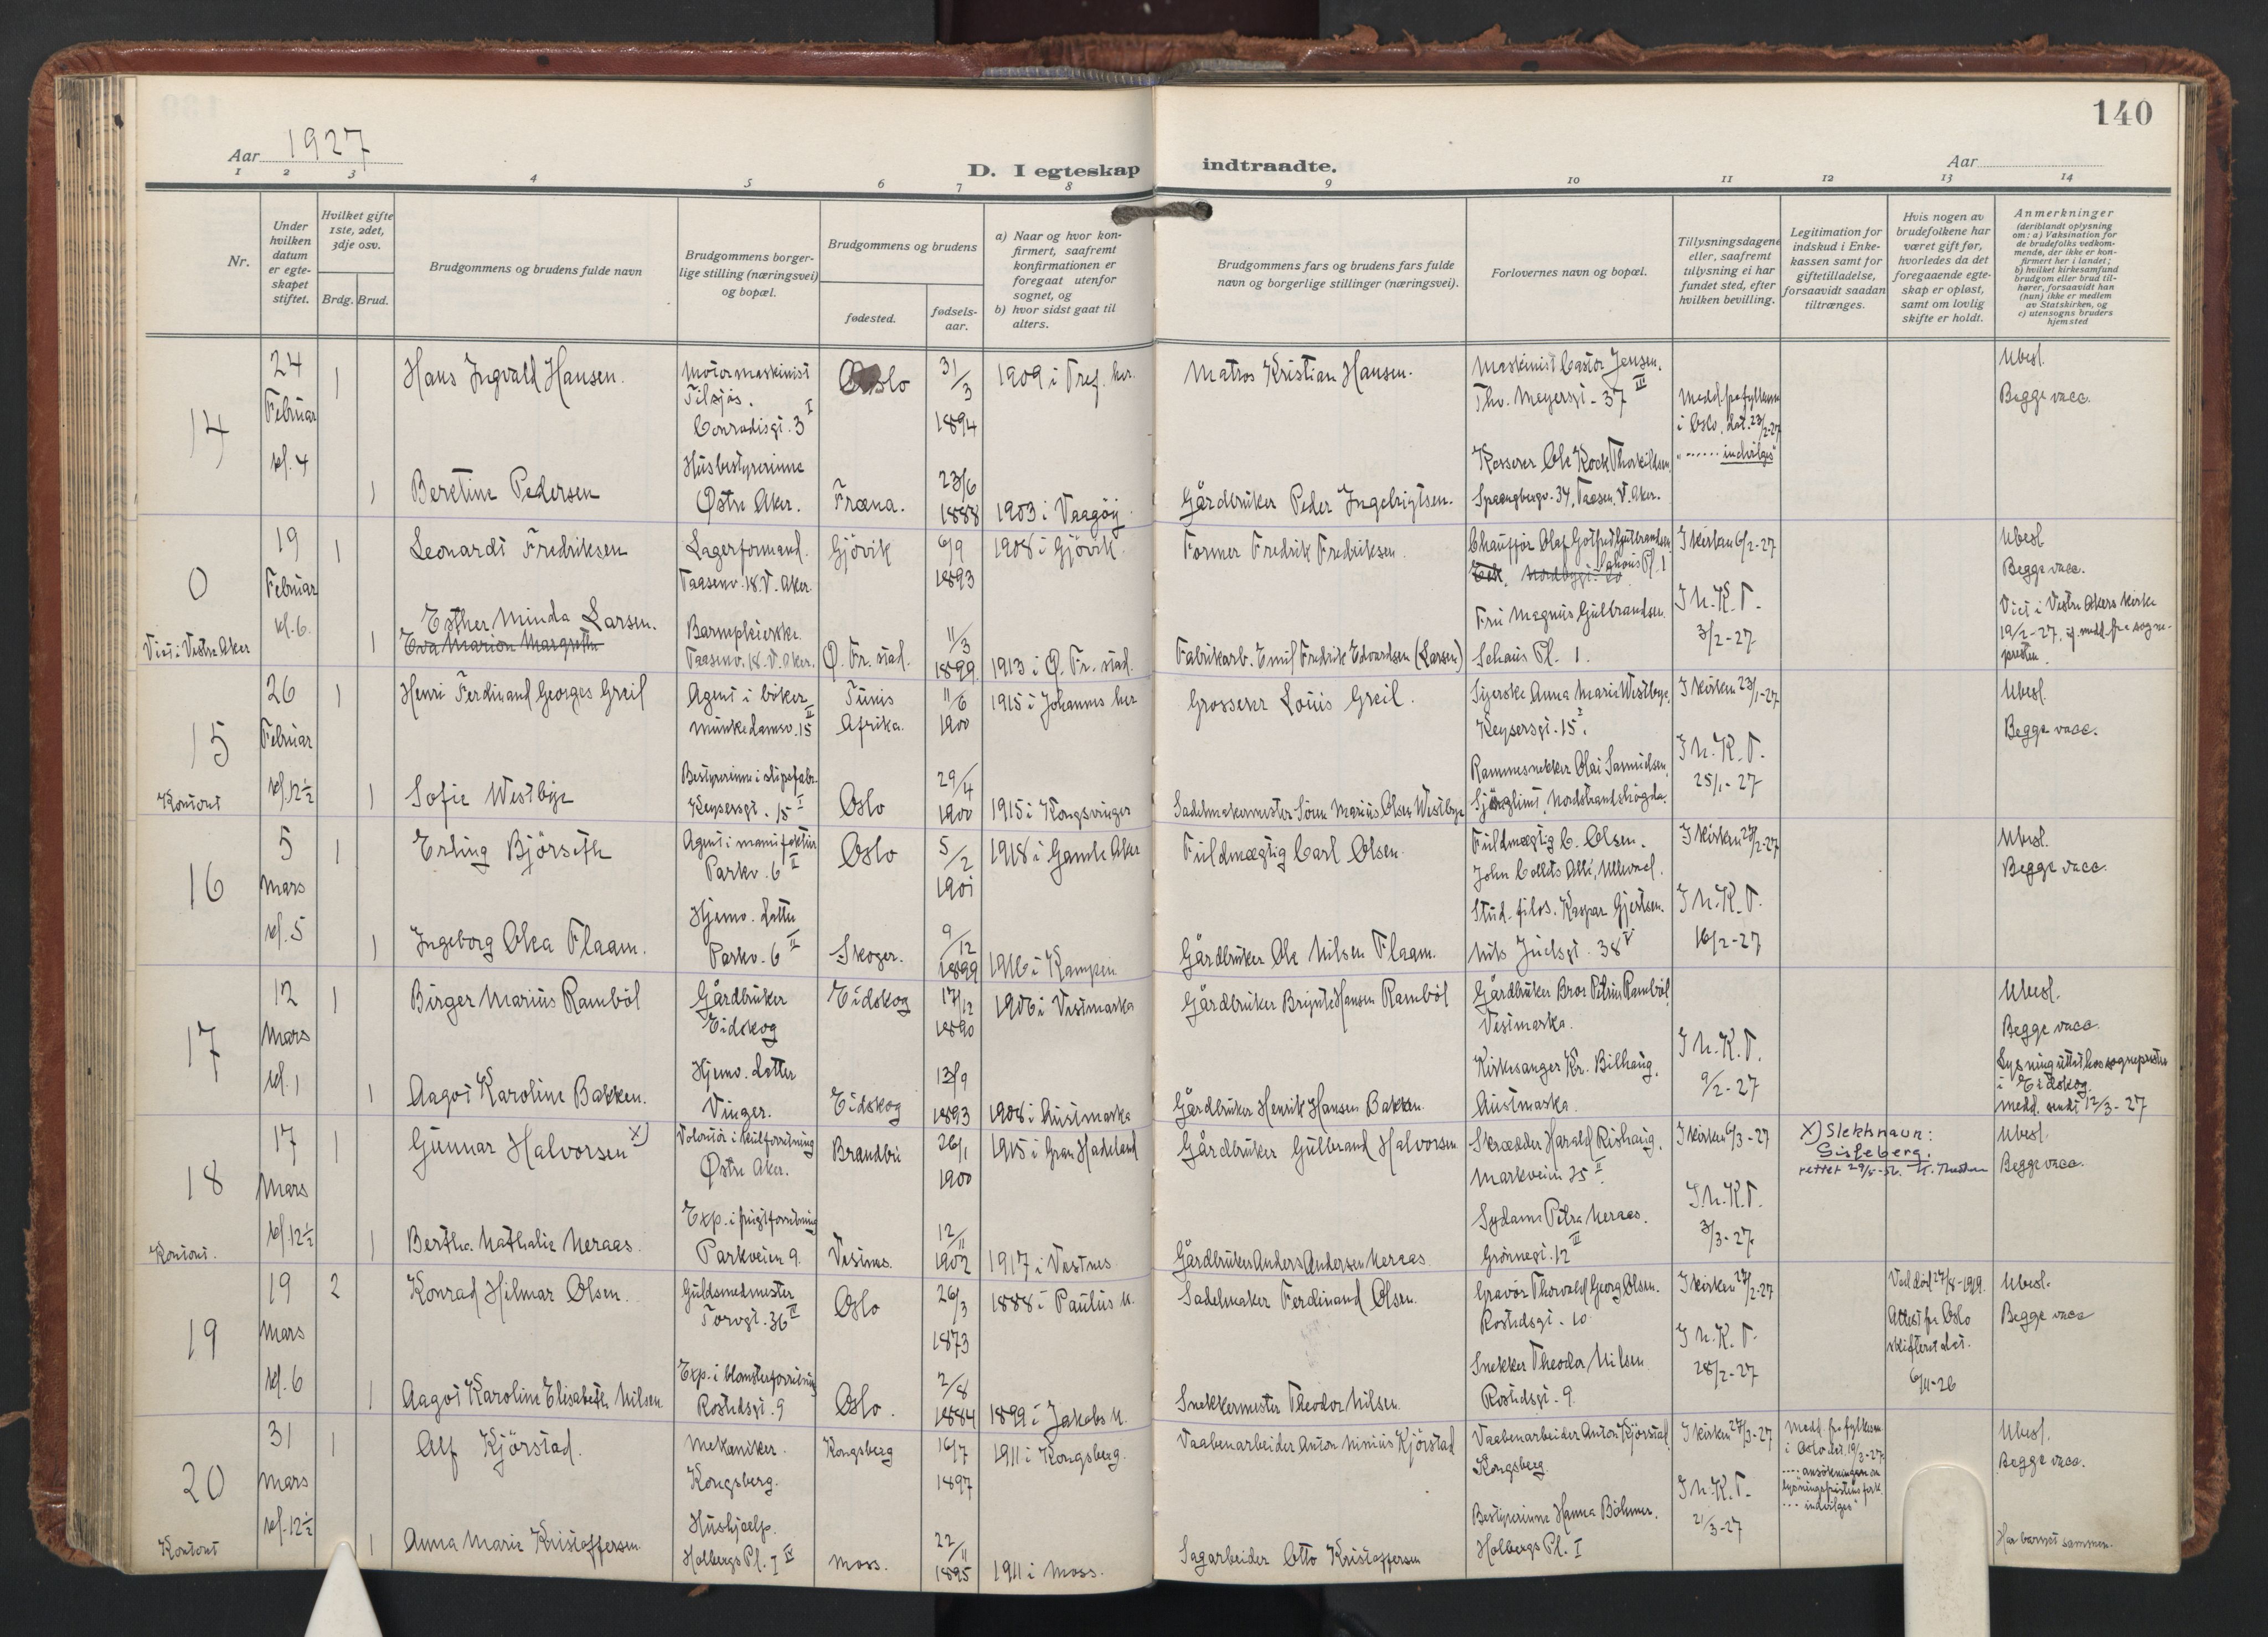 140
Aar 1927
D. I egteskap indtraadte.
Aar
1 2 3 4 5 6 7 8 9 10 11 12 13 14
Nr.
Under hvilken datum er egte-skapet stiftet.
Hvilket gifte 1ste, 2det, 3dje osv.
Brdg. Brud.
Brudgommens og brudens fulde navn
Brudgommens borger-lige stilling (næringsvei) og bopæl.
Brudgommens og brudens
fødested.
fødsels-aar.
a) Naar og hvor kon-firmert, saafremt konfirmationen er foregaat utenfor sognet, og
b) hvor sidst gaat til alters.
Brudgommens fars og brudens fars fulde navn og borgerlige stillinger (næringsvei).
Forlovernes navn og bopæl.
Tillysningsdagene eller, saafremt tillysning ei har fundet sted, efter hvilken bevilling.
Legitimation for indskud i Enke-kassen samt for giftetilladelse, forsaavidt saadan tiltrænges.
Hvis nogen av brudefolkene har været gift før, hvorledes da det foregaaende egte-skap er opløst, samt om lovlig skifte er holdt.
Anmerkninger (deriblandt oplysning om: a) Vaksination for de brudefolks vedkom-mende, der ikke er kon-firmert her i landet; b) hvilket kirkesamfund brudgom eller brud til-hører, forsaavidt han (hun) ikke er medlem av Statskirken, og c) utensogns bruders hjemsted
14
24 Februar kl. 4
1 Hans Ingvald Hansen.
Motormaskinist Tilsjøs. Conradisgt. 3 I
Oslo
31/3 1894
1909 i Tref. ker.
Matros Kristian Hansen.
Maskinist Castor Jensen. Thv. Meyersgt. 37 III
Medd. fra fylkesm. i Oslo, dat. 23/2-27 "...... indvilges"
Ubesl.
Begge vacc.
1 Berktine Pedersen
Husbestyrerinne Østre Aker.
Fræna.
23/6 1888
1903 i Vaagøy
Gårdbruker Peder Ingebrigtsen.
Kasserer Ole Kock Thorkildsen, Spaangbergv. 34, Taasen, V. Aker.
0
Viet i Vestre Aker
19 Februar kl. 6.
1 Leonardt Fredriksen
Lagerformand. Taasenv. 18. V. Aker.
Gjövik
6/9 1893
1908 i Gjövik
Former Fredrik Fredriksen.
Chauffør Olaf Gotfred Gulbrandsen Schous Pl. 1
I kirken 6/2-27
I N.K.T. 3/2-27
Ubesl
Begge vacc.
Viet i Vestre Akers kirke 19/2-27, if. medd. fra sogne-presten.
1 Esther Minda Larsen.
Eva Marion Margrethe
Barnepleierske. Taasenv. 18. V. Aker.
Ø. Fr. stad.
11/3 1899
1913 i Ø. Fr. stad.
Fabrikarb. Emil Fredrik Edvardsen (Larsen)
Fru Magnus Gulbrandsen. Schous Pl. 1.
15
Kontoret
26 Februar kl. 12½
1 Henri Ferdinand Georges Greil
Agent i böker Munkedamsv. 15 II
Tunis Afrika.
11/6 1900
1915 i Johannes ker
Grosserer Louis Greil.
Syerske Anna Marie Westbye, Keysersgt. 15 I.
I kirken 23/1-27
I N.K.T. 25/1-27
Ubesl.
Begge vacc.
1 Sofie Westbye
Bestyrerinne i slipsfabr. Keysersgt. 15 I
Oslo
29/4 1900
1915 i Kongsvinger
Sadelmakermester Sören Marius Olsen Westbye
Rammesnekker Olai Samuelsen, Sjöglimt, Nordstrandshögda.
16
5 Mars kl. 5
1 Erling Björseth
Agent i manufaktur Parkv. 6 II
Oslo
5/2 1901
1918 i Gamle Aker
Fuldmægtig Carl Olsen.
Fuldmægtig C. Olsen. John Colletts Allé, Ullevaal.
I kirken 27/2-27
I N.K.T. 16/2-27
Ubesl.
Begge vacc.
1 Ingeborg Olea Flaam.
Hjemv. datter Parkv. 6 II
Skoger.
9/12 1899
1916 i Kampen
Gårdbruker Ole Nilsen Flaam.
Stud. filos. Kaspar Gjertsen. Nils Juelsgt. 38 V
17
12 Mars kl. 1
1 Birger Marius Ramböl
Gårdbruker Eidskog
Eidskog
17/12 1890
1906 i Vestmarka
Gårdbruker Brynte Hansen Ramböl
Gårdbruker Bror Petrus Ramböl, Vestmarka.
I N.K.T. 9/2-27
Ubesl.
Begge vacc.
Lysning uttat hos sognepresten i Eidskog.
Medd. sendt 12/3-27
1 Aagot Karoline Bakken.
Hjemv. datter Vinger.
Eidskog
13/9 1893
1908 i Austmarka
Gårdbruker Henrik Hansen Bakken.
Kirkesanger Kr. Bilhaug, Austmarka.
18
Kontoret.
17 Mars kl. 12½
1 Gunnar Halvorsen x)
Volontör i kulforretning Østre Aker.
Brandbu
26/1 1900
1915 i Gran Hadeland
Gårdbruker Gulbrand Halvorsen
Skrædder Harald Rishaug, Markveien 35 II.
I kirken 6/3-27
I N.K.T. 3/3-27.
x) Slektsnavn: Sisleberg. rettet 29/5-56.
Ubesl.
Begge vacc.
1 Bertha Nathalie Neraas.
Exp. i frugtforretning Parkveien 9.
Vestnes.
12/11 1902
1917 i Vestnes.
Gårdbruker Anders Andersen Neraas.
Sydame Petra Neraas. Grönnegt. 12 III
19
19 Mars kl. 6
2 Konrad Hilmar Olsen.
Guldsmedmester Torvgt. 36 II
Oslo
26/3 1873
1888 i Paulus k.
Sadelmaker Ferdinand Olsen.
Gravör Thorvald Georg Olsen. Rostedsgt. 10
I kirken 27/2-27
I N.K.T. 28/2-27
Ved død 27/8-1919. Attest fra Oslo skifterett dat. 6/11-26
Ubesl.
Begge vacc
1 Aagot Karoline Elisabeth Nilsen
Exp. i blomsterforretning Rostedsgt. 9
Oslo.
2/8 1884
1899 i Jakobs k.
Snekkermester Theodor Nilsen.
Snekker Theodor Nilsen. Rostedsgt. 9.
20
Kontoret
31 Mars kl. 12½
1 Alf Kjörstad.
Mekaniker. Kongsberg.
Kongsberg
16/7 1897
1911 i Kongsberg.
Vaabenarbeider Anton Ninius Kjörstad
Vaabenarbeider Anton Kjörstad, Kongsberg.
I kirken 27/3-27
I N.K.T. 21/3-27
Medd. fra fylkesm. i Oslo dat. 19/3-27. .... ansökningen om lysningsfristens fork. ... indvilges"
Ubesl.
Begge vacc.
1 Anna Marie Kristoffersen.
Hushjælp. Holbergs Pl. I IV
Moss.
22/11 1895
1911 i Moss.
Sagarbeider Otto Kristoffersen
Bestyrerinne Hanna Böhmer. Holbergs Pl. I
Har barnet sammen.